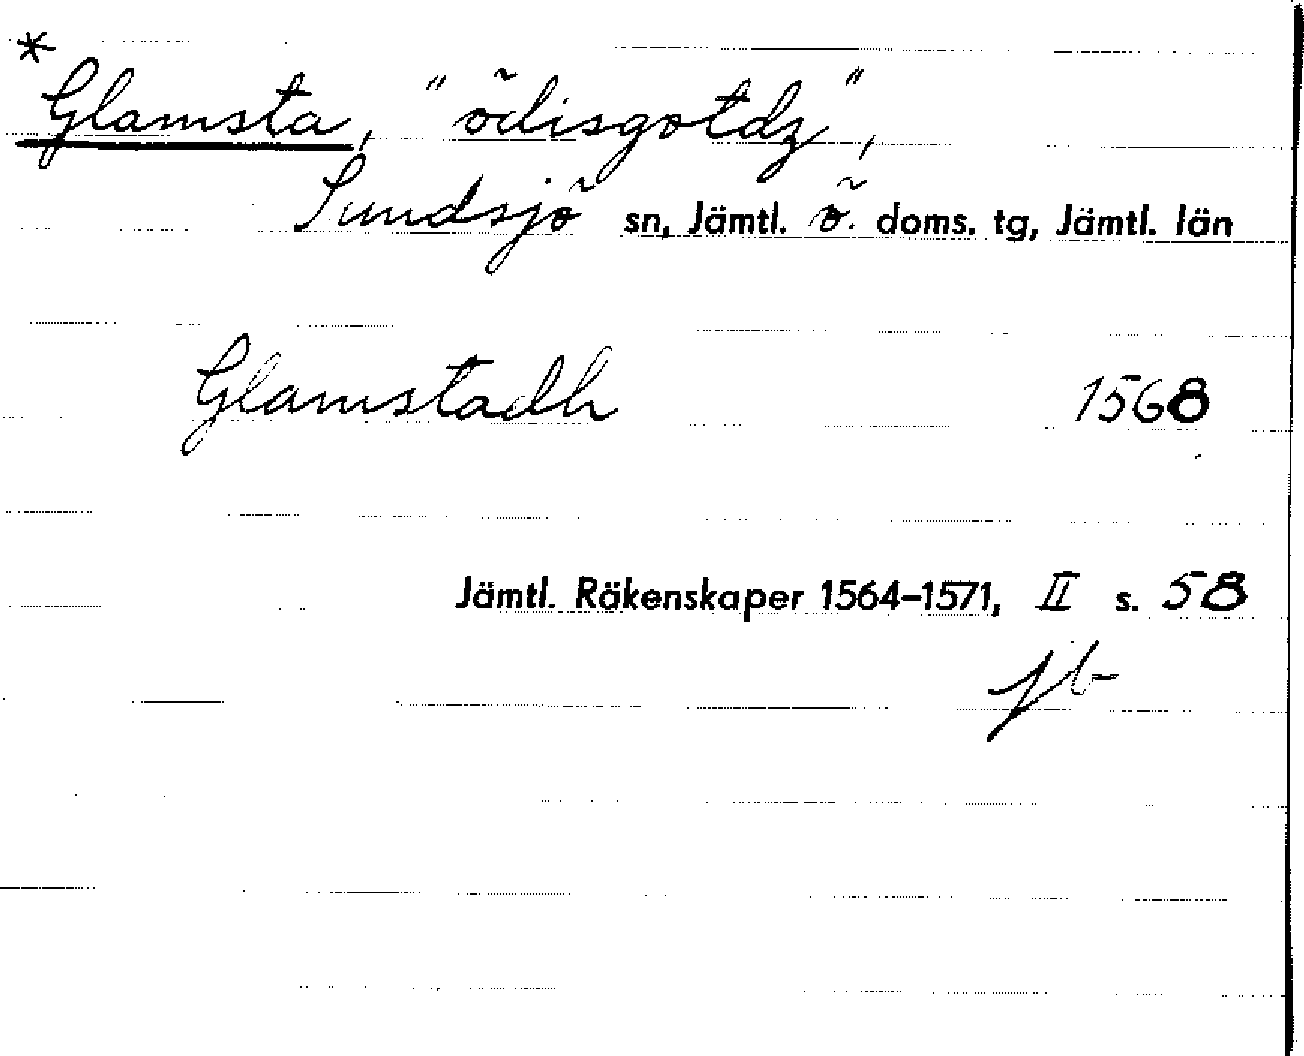 *Glamsta, "ödisgotdz",
Sundsjö sn, Jämtl. ö. doms. tg, Jämtl. län
Glamstadh 1568
Jämtl. Räkenskaper 1564–1571, II s. 58